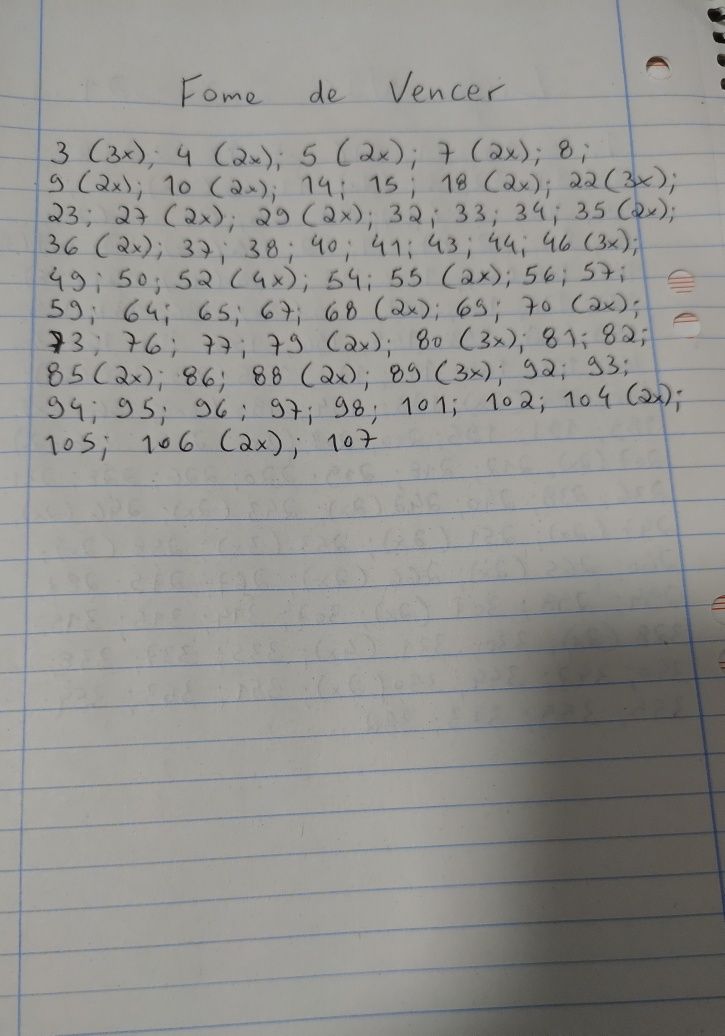 Fome de Vencer
3 (3x); 4 (2x); 5 (2x); 7 (2x); 8;
9 (2x); 10 (2x); 14; 15; 18 (2x); 22 (3x);
23; 27 (2x); 29 (2x); 32; 33; 34; 35 (2x);
36 (2x); 37; 38; 40; 41; 43; 44; 46 (3x);
49; 50; 52 (4x); 54; 55 (2x); 56; 57;
59; 64; 65; 67; 68 (2x); 69; 70 (2x);
73; 76; 77; 79 (2x); 80 (3x); 81; 82;
85 (2x); 86; 88 (2x); 89 (3x); 92; 93;
94; 95; 96; 97; 98; 101; 102; 104 (2x);
105; 106 (2x); 107